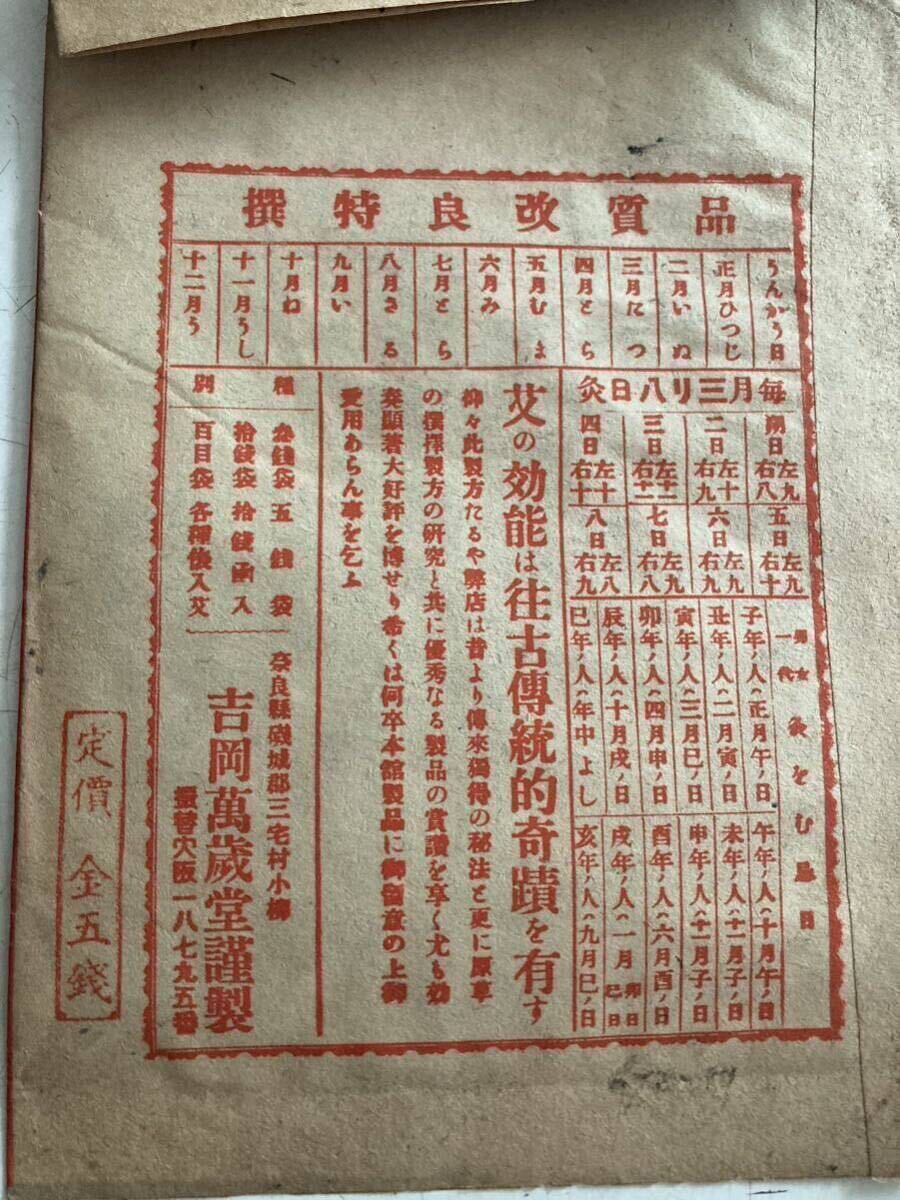 品質改良特撰
うんがう日
正月ひつじ
二月いぬ
三月たつ
四月とら
五月むま
六月み
七月とら
八月さる
九月い
十月ね
十一月うし
十二月う
毎月三リ八日灸
朔日 左九 右八
二日 左十 右九
三日 左十二 右十一
四日 左十 右十
五日 左九 右十
六日 左九 右九
七日 左九 右八
八日 左八 右九
男女一代 灸をむ忌日
子年ノ人ハ正月午ノ日
丑年ノ人ハ二月寅ノ日
寅年ノ人ハ三月巳ノ日
卯年ノ人ハ四月申ノ日
辰年ノ人ハ十月戌ノ日
巳年ノ人ハ年中よし
午年ノ人ハ十月午ノ日
未年ノ人ハ十一月子ノ日
申年ノ人ハ十二月子ノ日
酉年ノ人ハ六月酉ノ日
戌年ノ人ハ一月 卯日 巳日
亥年ノ人ハ九月巳ノ日
艾の効能は往古傳統的奇蹟を有す
抑々此製方たるや弊店は昔より傳來獨得の秘法と更に原草
の撰擇製方の研究と共に優秀なる製品の賞讃を享く尤も効
奏顯著大好評を博せり希くは何卒本舘製品に御留意の上御
愛用あらん事を乞ふ
種別
叁錢袋 五錢袋
拾錢袋 拾錢函入
百目袋 各種袋入艾
奈良縣磯城郡三宅村小柳
吉岡萬歲堂謹製
振替大阪一八七九五番
定價 金五錢